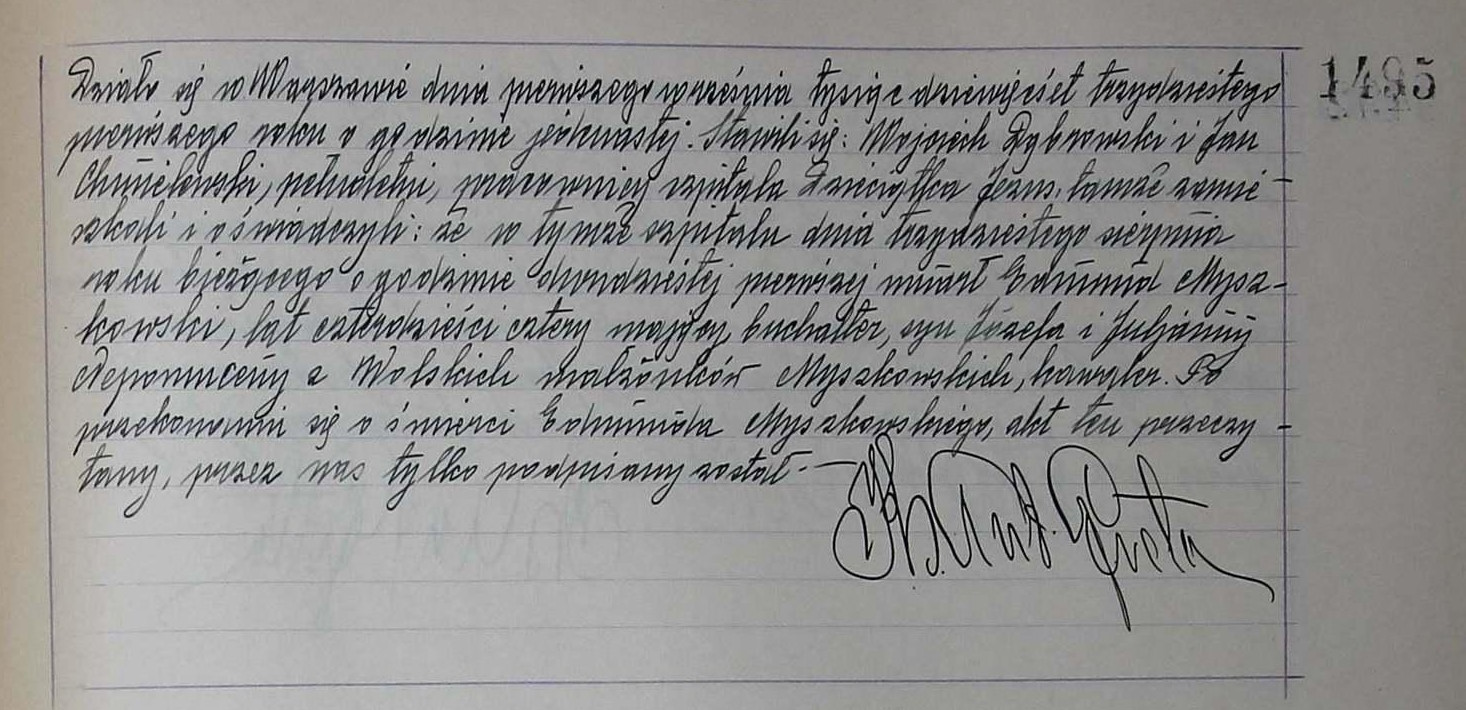 Działo się w Warszawie dnia pierwszego września tysiąc dziewięćset trzydziestego
pierwszego roku o godzinie jedenastej. Stawili się: Wojciech Dąbrowski i Jan
Chmielewski, pełnoletni, pracownicy szpitala Dzieciątka Jezus, tamże zamie-
szkali i oświadczyli: że w tymże szpitalu dnia trzydziestego sierpnia
roku bieżącego o godzinie dwudziestej pierwszej umarł Edmund Mysz-
kowski, lat czterdzieści cztery mający, buchalter, syn Józefa i Juljanny
Nepomuceny z Wolskich małżonków Myszkowskich, kawaler. Po
przekonaniu się o śmierci Edmunda Myszkowskiego, akt ten przeczy-
tany, przez nas tylko podpisany został.
1495